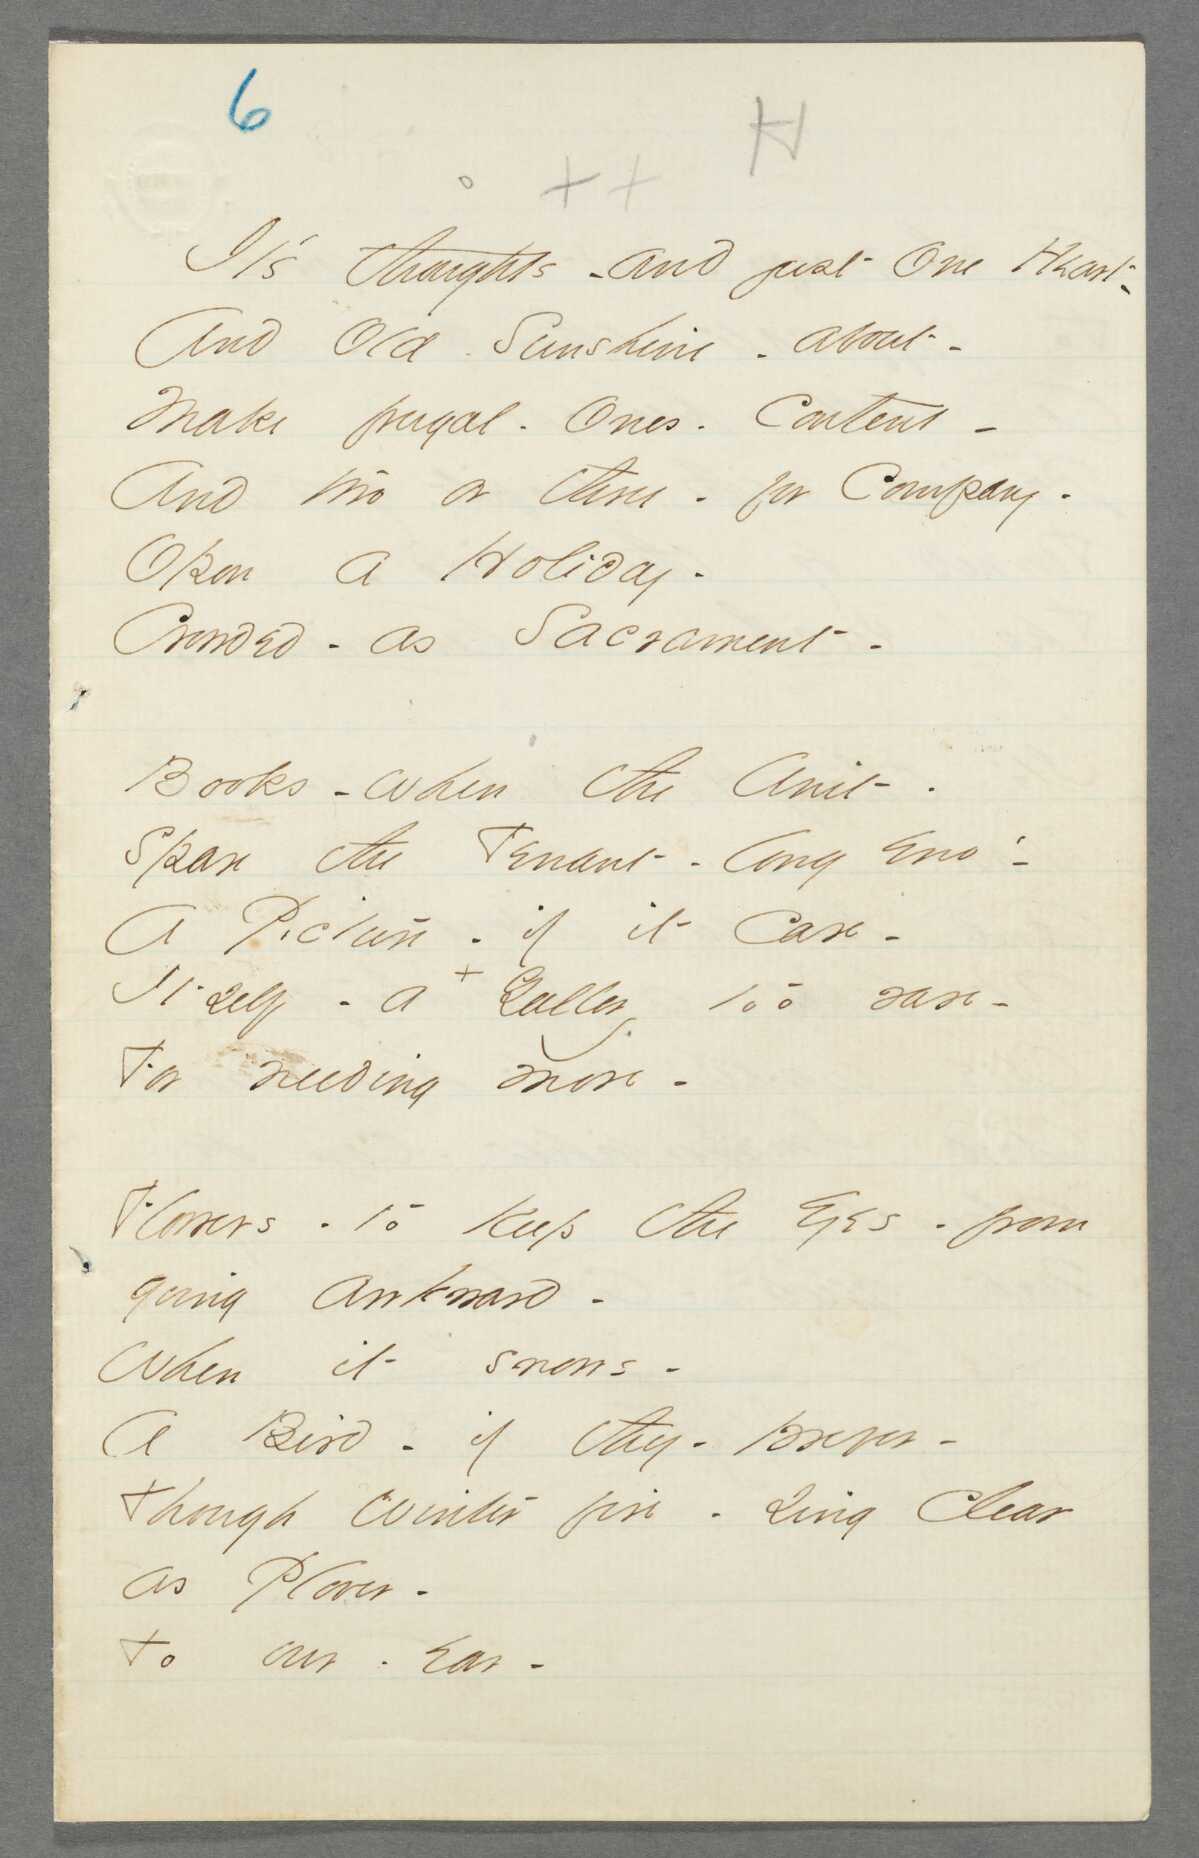 6
H
° + +
It's thoughts - and just One Heart -
And Old Sunshine - about -
Make frugal - Ones - Content -
And two or three - for Company -
Opon a Holiday -
Crowded - as Sacrament -
Books - when the Unit -
Spare the Tenant - long eno' -
A Picture - if it Care -
Itself - a + Gallery too rare -
For needing more -
Flowers - to keep the Eyes - from
going awkward -
When it snows -
A Bird - if they - prefer -
Though Winter fire - sing clear
as Plover -
To our - ear -